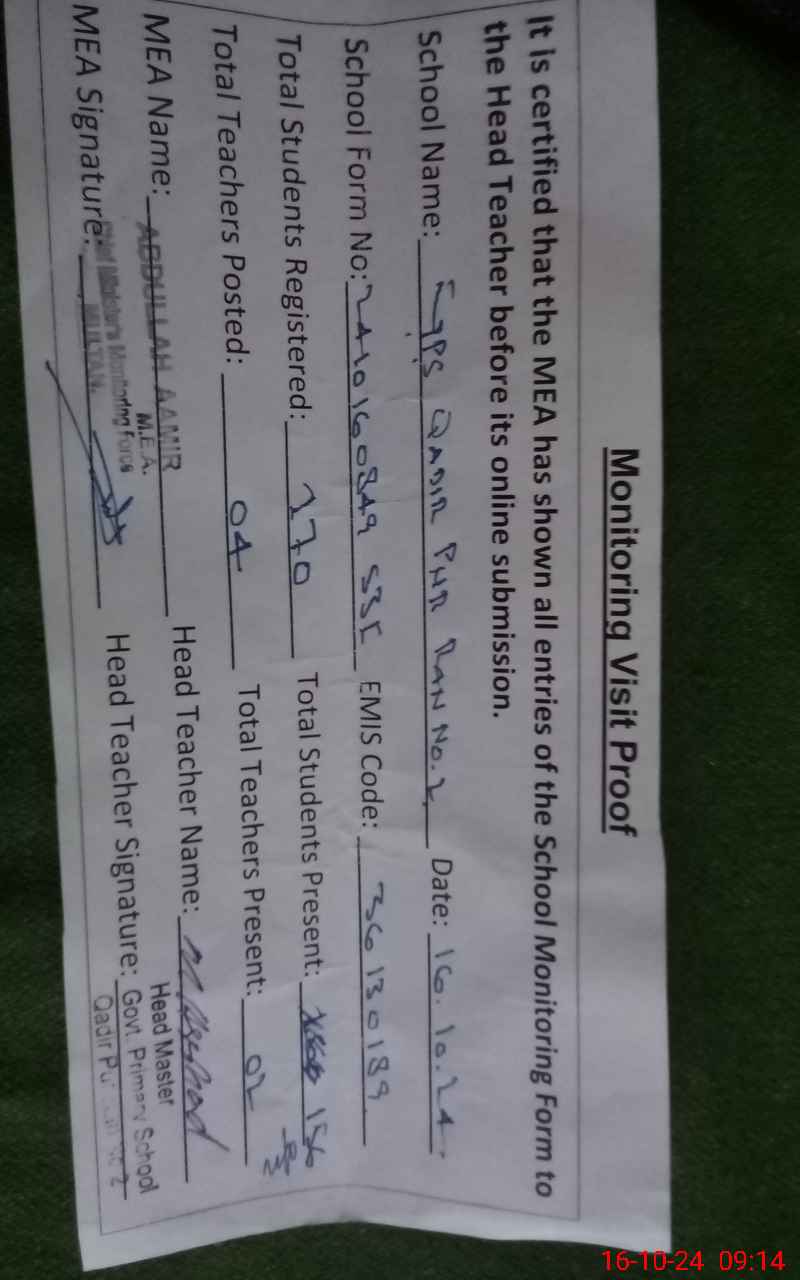 Monitoring Visit Proof
It is certified that the MEA has shown all entries of the School Monitoring Form to
the Head Teacher before its online submission.
School Name: GPS QADIR PUR RAN No.2 Date: 16.10.24.
School Form No: 2410160849 EMIS Code: 36130189
Total Students Registered: 270 Total Students Present: 156
Total Teachers Posted: 04 Total Teachers Present: 02
MEA Name: ABDULLAH AAMIR Head Teacher Name:
M.E.A. Head Master
MEA Signature: Chief Minister's Monitoring Force Head Teacher Signature: Govt. Primary School
MULTAN. Qadir Pu 2
16-10-24 09:14